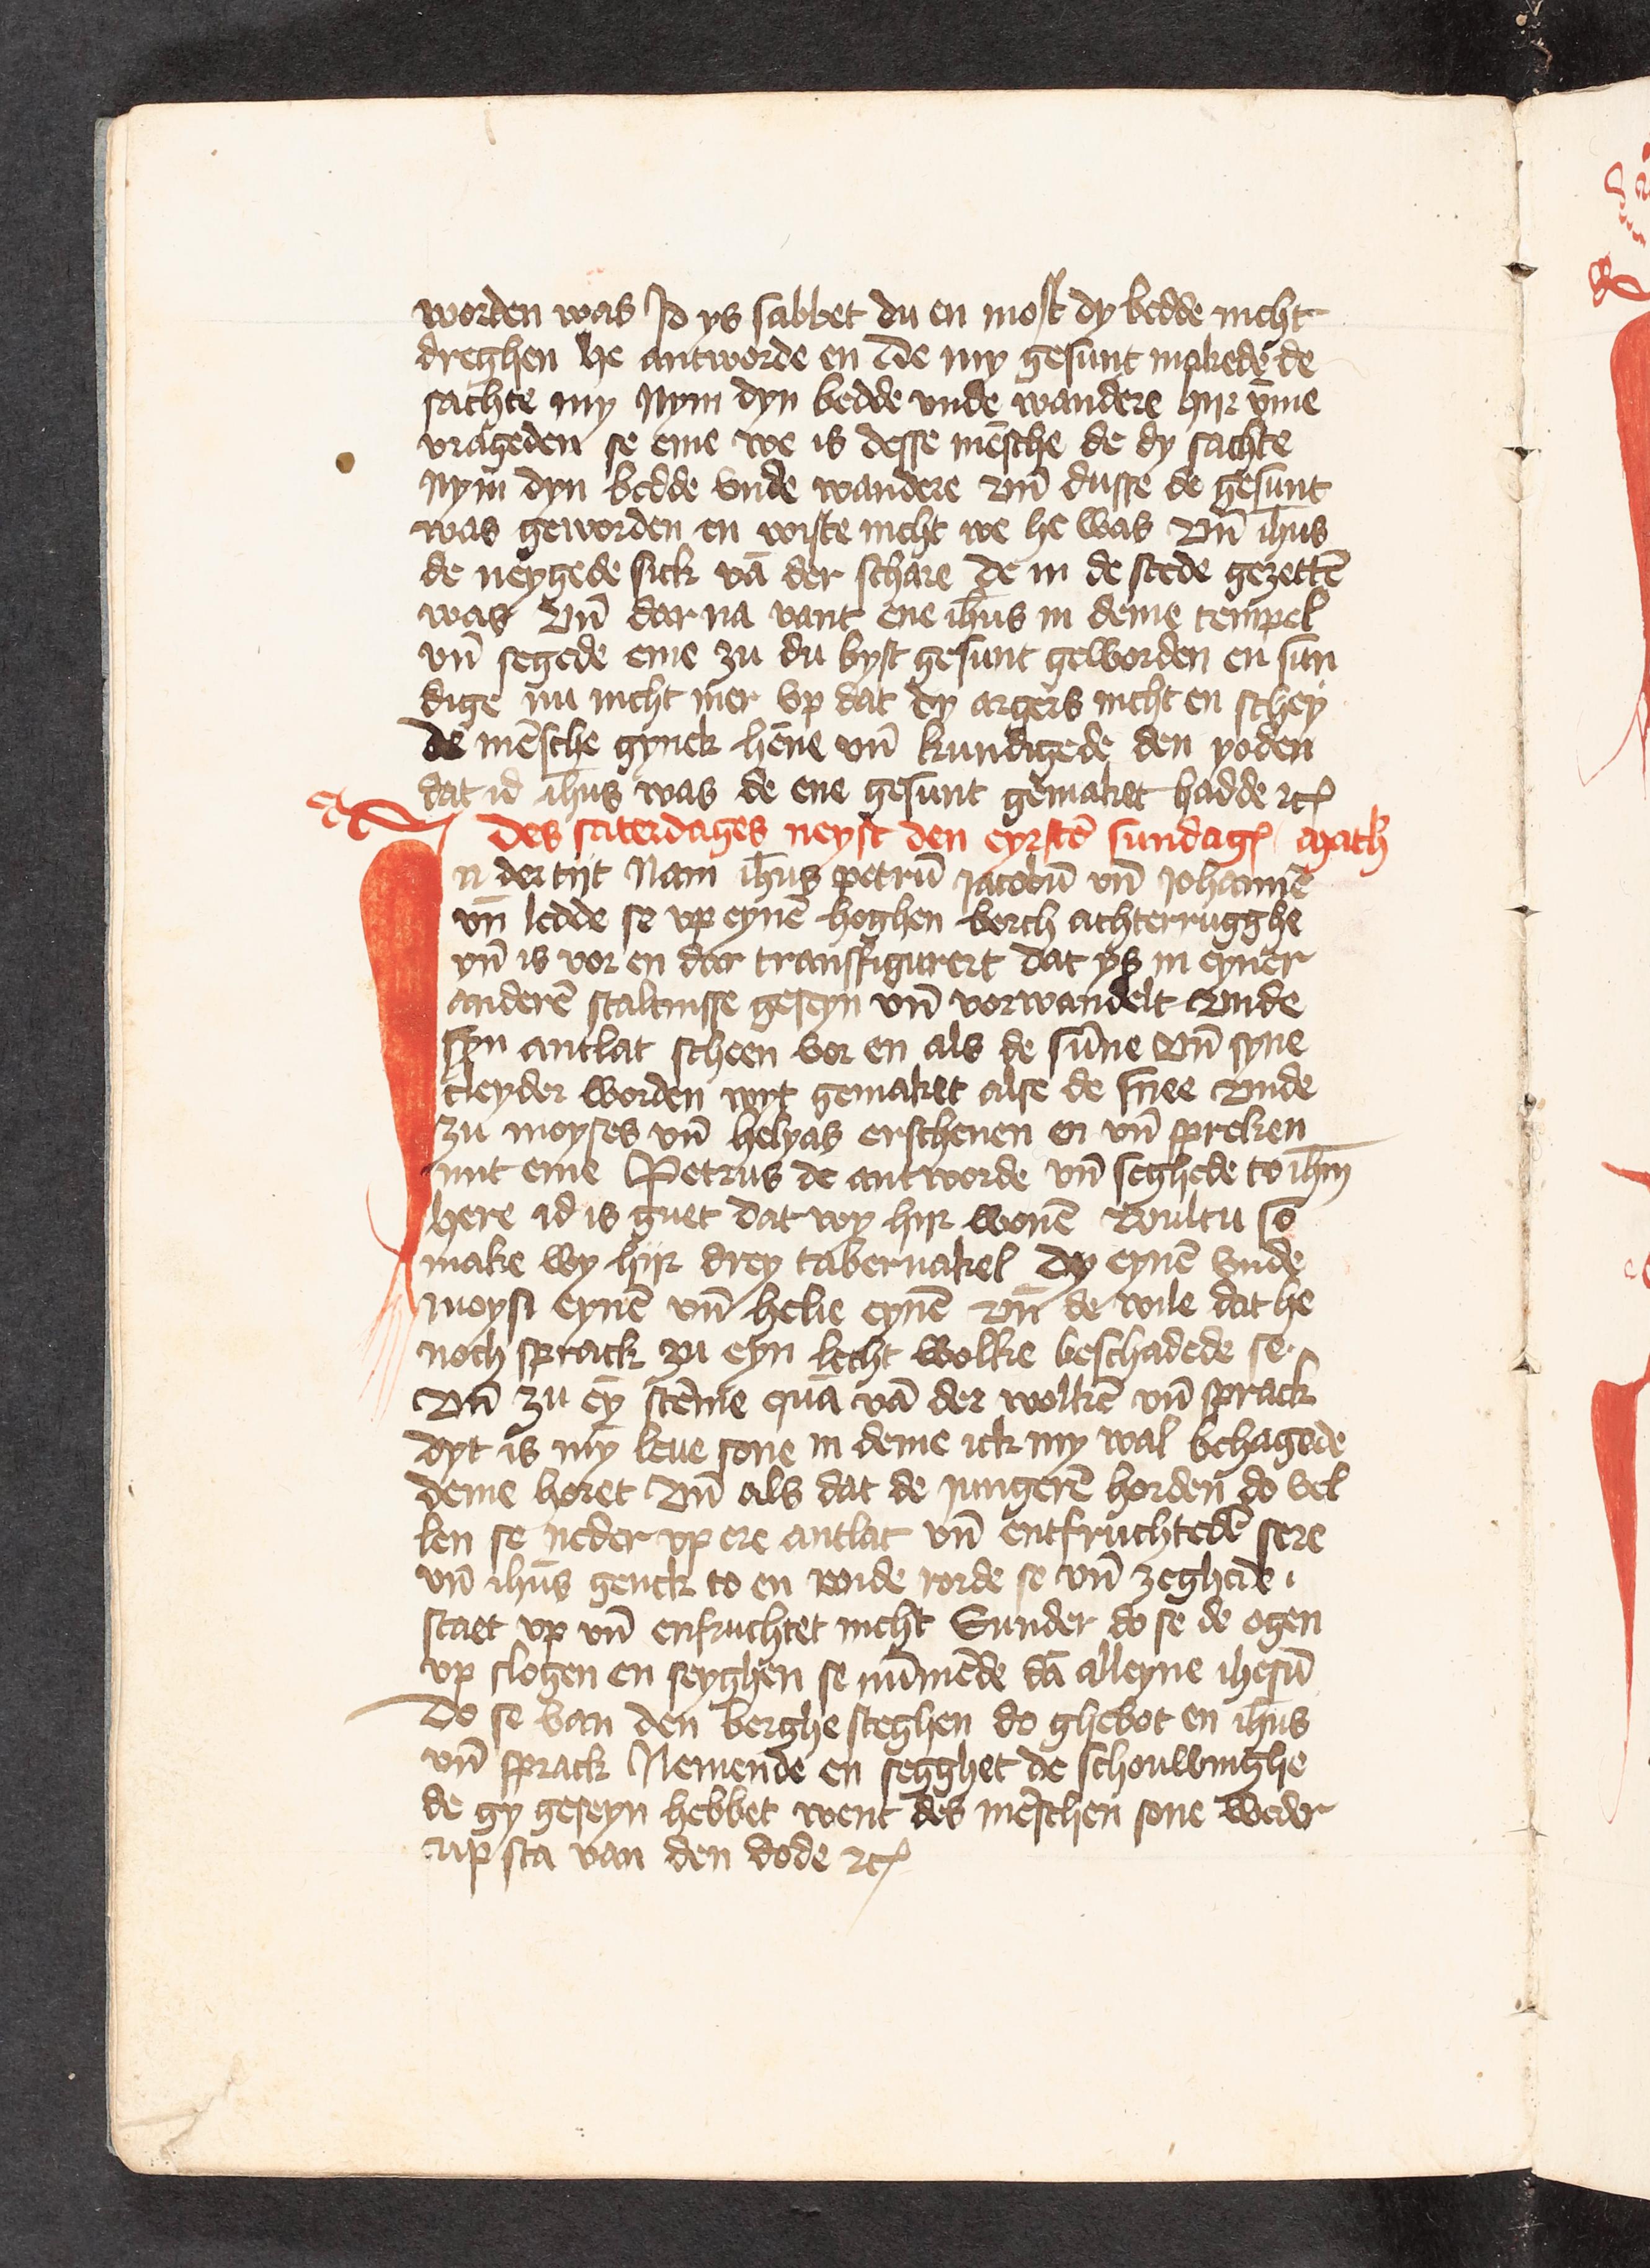 worden was Jd ys sabbet du en most dy bedde nicht
dreghen he antworde en De my gesunt makede de
sachte my Nym dyn bedde vnde wandere hijr vm̄e
vrageden se eme we is desse mēsche de dy sachte
Nym dyn bedde vnde wandere Vn̄ dusse de gesunt
was geworden en wiste nicht we he was Vn̄ ih̄us
de neygede sick vā der schare De in de stede gezettē
was Vn̄ dar na vant ene ih̄us in deme tempel
vn̄ segede eme zu du byst gesunt geworden en sun
dige nu nicht mer vp dat dy argers nicht en schey
de mēsche gynck hēne vn̄ kundigede den yoden
dat id ih̄us was de ene gesunt gemaket hadde ꝛc
Des saterdages neyst den eyrstē sundagꝭ math
In der tijt Nam ih̄us petrū jacobū vn̄ johannē
vn̄ ledde se vp eynē hoghen berch achterrugghe
vn̄ is vor en dar transfigurert dat ys in eyner
anderē staltnisse geseyn vn̄ vorwandelt Vnde
syn antlat scheen vor en als de sūne Vn̄ syne
cleyder worden wyt gemaket alse de snee Vnde
zu moyses vn̄ helyas erschenen en vn̄ spreken
mit eme Petrus de antworde vn̄ seghede to ih̄m
here id is guet dat wy hijr wonē Wultu so
make wy hijr drey tabernakel Dy eynē vnde
moysi eynē vn̄ helie eynē Vn̄ de wile dat he
noch sprack zu eyn lecht wolke beschadede se
Vn̄ zu ey̅ stēme quā vā der wolkē vn̄ sprack
dyt is my̅ leue sone in deme ick my wal behagede
deme horet Vn̄ als dat de jungerē horden do vel
len se neder vp ere antlat vn̄ entfruchtedē sere
vn̄ ih̄us genck to en vnde rorde se vn̄ zeghede
staet vp vn̄ enfruchtet nicht Sunder do se de ogen
vp slogen en seyghen se nūmēde dā alleyne ihesū
Do se van den berghe steghen do ghebot en ih̄us
vn̄ sprack Nemende en segghet de schouwinghe
de gy geseyn hebbet went des mēschen sone weder
vp sta van den dode ꝛc